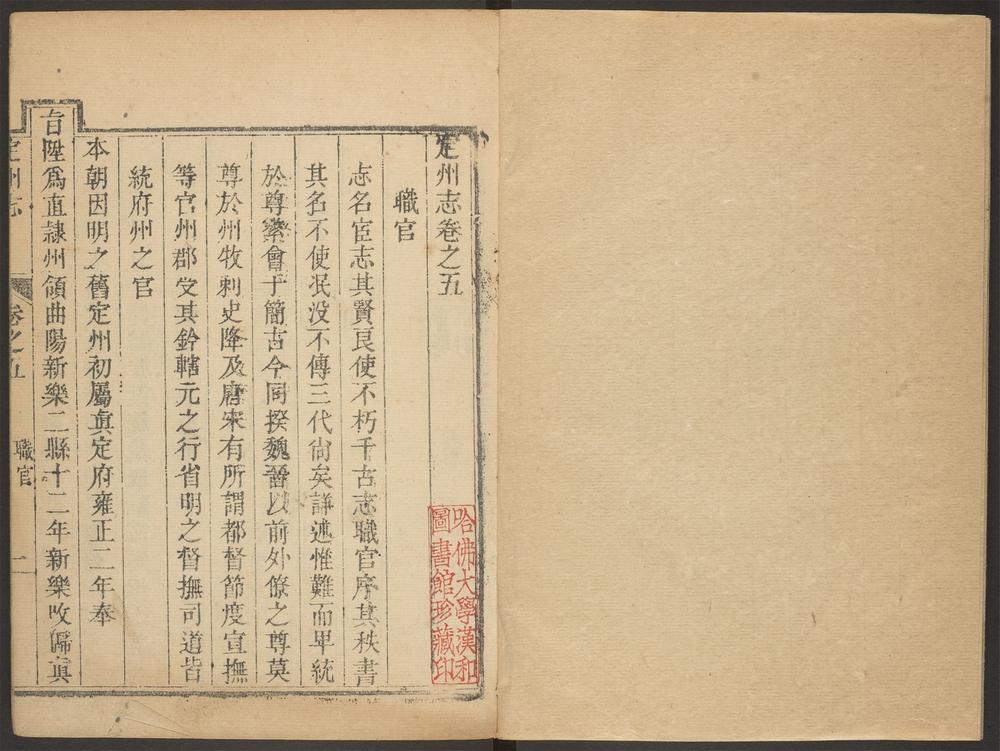 定州志卷之五
職官
志名宦志其賢良使不朽千古志職官序其秩書
其名不使泯没不傳三代尙矣詳述惟難而畢統
於尊縈會于簡古今同揆魏晉以前外僚之尊莫
尊於州牧刺史降及唐宋有所謂都督節度宣撫
等官州郡受其鈐轄元之行省明之督撫司道皆
統府州之官
本朝因明之舊定州初屬眞定府雍正二年奉
旨陞爲直隷州領曲陽新樂二縣十二年新樂改歸眞
定州志
卷之五
職官
一
哈佛大學漢和
圖書館珍藏印